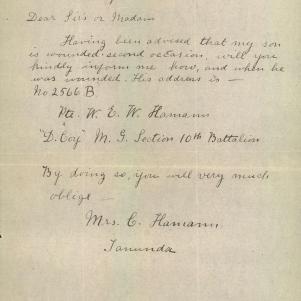 Dear Sirs or Madam
Having been advised that my son
is wounded second occasion, will you
kindly inform me how, and when he
was wounded. His address is —
No 2566 B.
Pte. W. E. W. Hamann
"D. Coy" M. G. Section 10th Battalion
By doing so, you will very much
oblige —
Mrs. C. Hamann
Tanunda